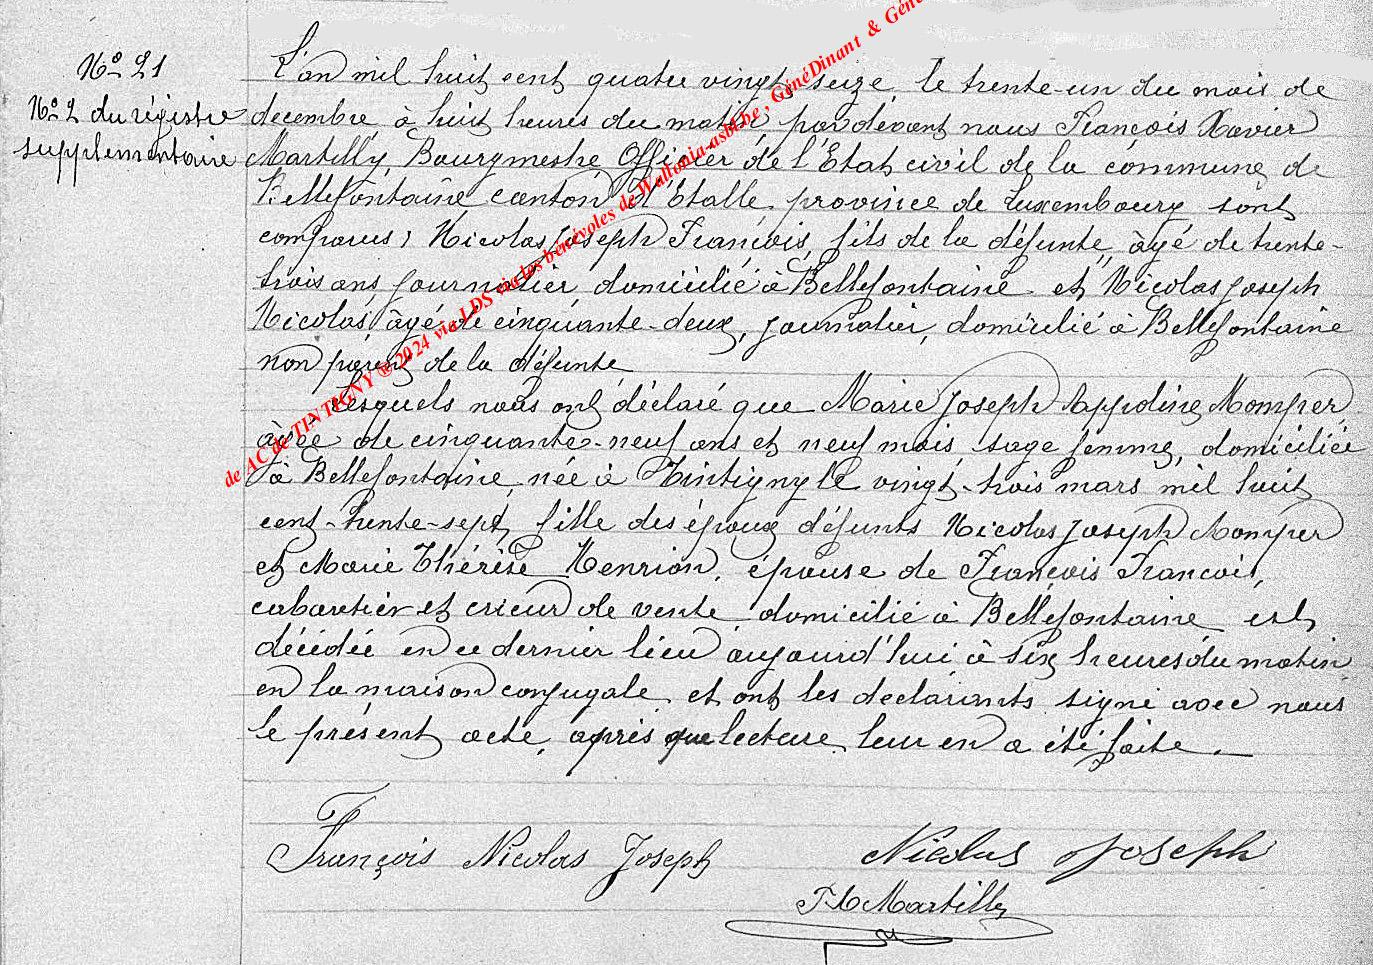 No 21
No 2 du régistre
supplementaire
L'an mil huit cent quatre vingt seize le trente-un du mois de
decembre à huit heures du matin, par devant nous François Xavier
Martilly Bourgmestre Officier de l'Etat civil de la commune de
Bellefontaine canton d'Etalle province de Luxembourg sont
comparus, Nicolas Joseph François, fils de la défunte, âgé de trente-
trois ans journalier, domicilié à Bellefontaine et Nicolas Joseph
Nicolas, âgé de cinquante-deux, journalier, domicilié à Bellefontaine
non parent de la défunte
Lesquels nous ont déclaré que Marie Joseph Appoline Momper
âgée de cinquante-neuf ans et neuf mois sage femme, domiciliée
à Bellefontaine, née à Tintigny le vingt-trois mars mil huit
cent-trente-sept, fille des époux défunts Nicolas Joseph Momper
et Marie Thérèse Henrion, épouse de François François,
cabaretier et crieur de vente domicilié à Bellefontaine est
décédée en ce dernier lieu aujourd'hui à six heures du matin
en la maison conjugale et ont les declarants signé avec nous
le présent acte, après que lecture leur en a été faite.
François Nicolas Joseph
Nicolas Joseph
F X Martilly
de AC de TINTIGNY ® 2024 via LDS via les bénévoles de Wallonia-asbl.be ; GénéDinant & Géné